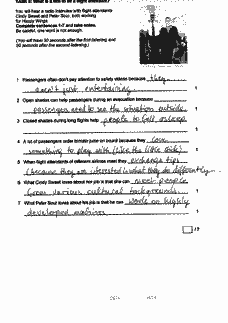 You will hear a radio interview with flight attendants
Cindy Sweet and Peter Sour, both working
for Happy Wings.
Complete sentences 1-7 and take notes.
Be careful, one word is not enough.
(You will have 30 seconds after the first listening and
30 seconds after the second listening.)
1 Passengers often don't pay attention to safety videos because they
aren't just entertaining. 1
2 Open shades can help passengers during an evacuation because
passengers need to see the situation outside. 1
3 Closed shades during long flights help people to fall asleep
1
4 A lot of passengers order tomato juice on board because they love
something to play with (like the little 1
5 When flight attendants of different airlines meet they exchange tips
(because they are interested in what they do differently). 1
6 What Cindy Sweet loves about her job is that she can meet people
from various cultural backgrounds. 1
7 What Peter Sour loves about his job is that he can work on highly
developed machines 1